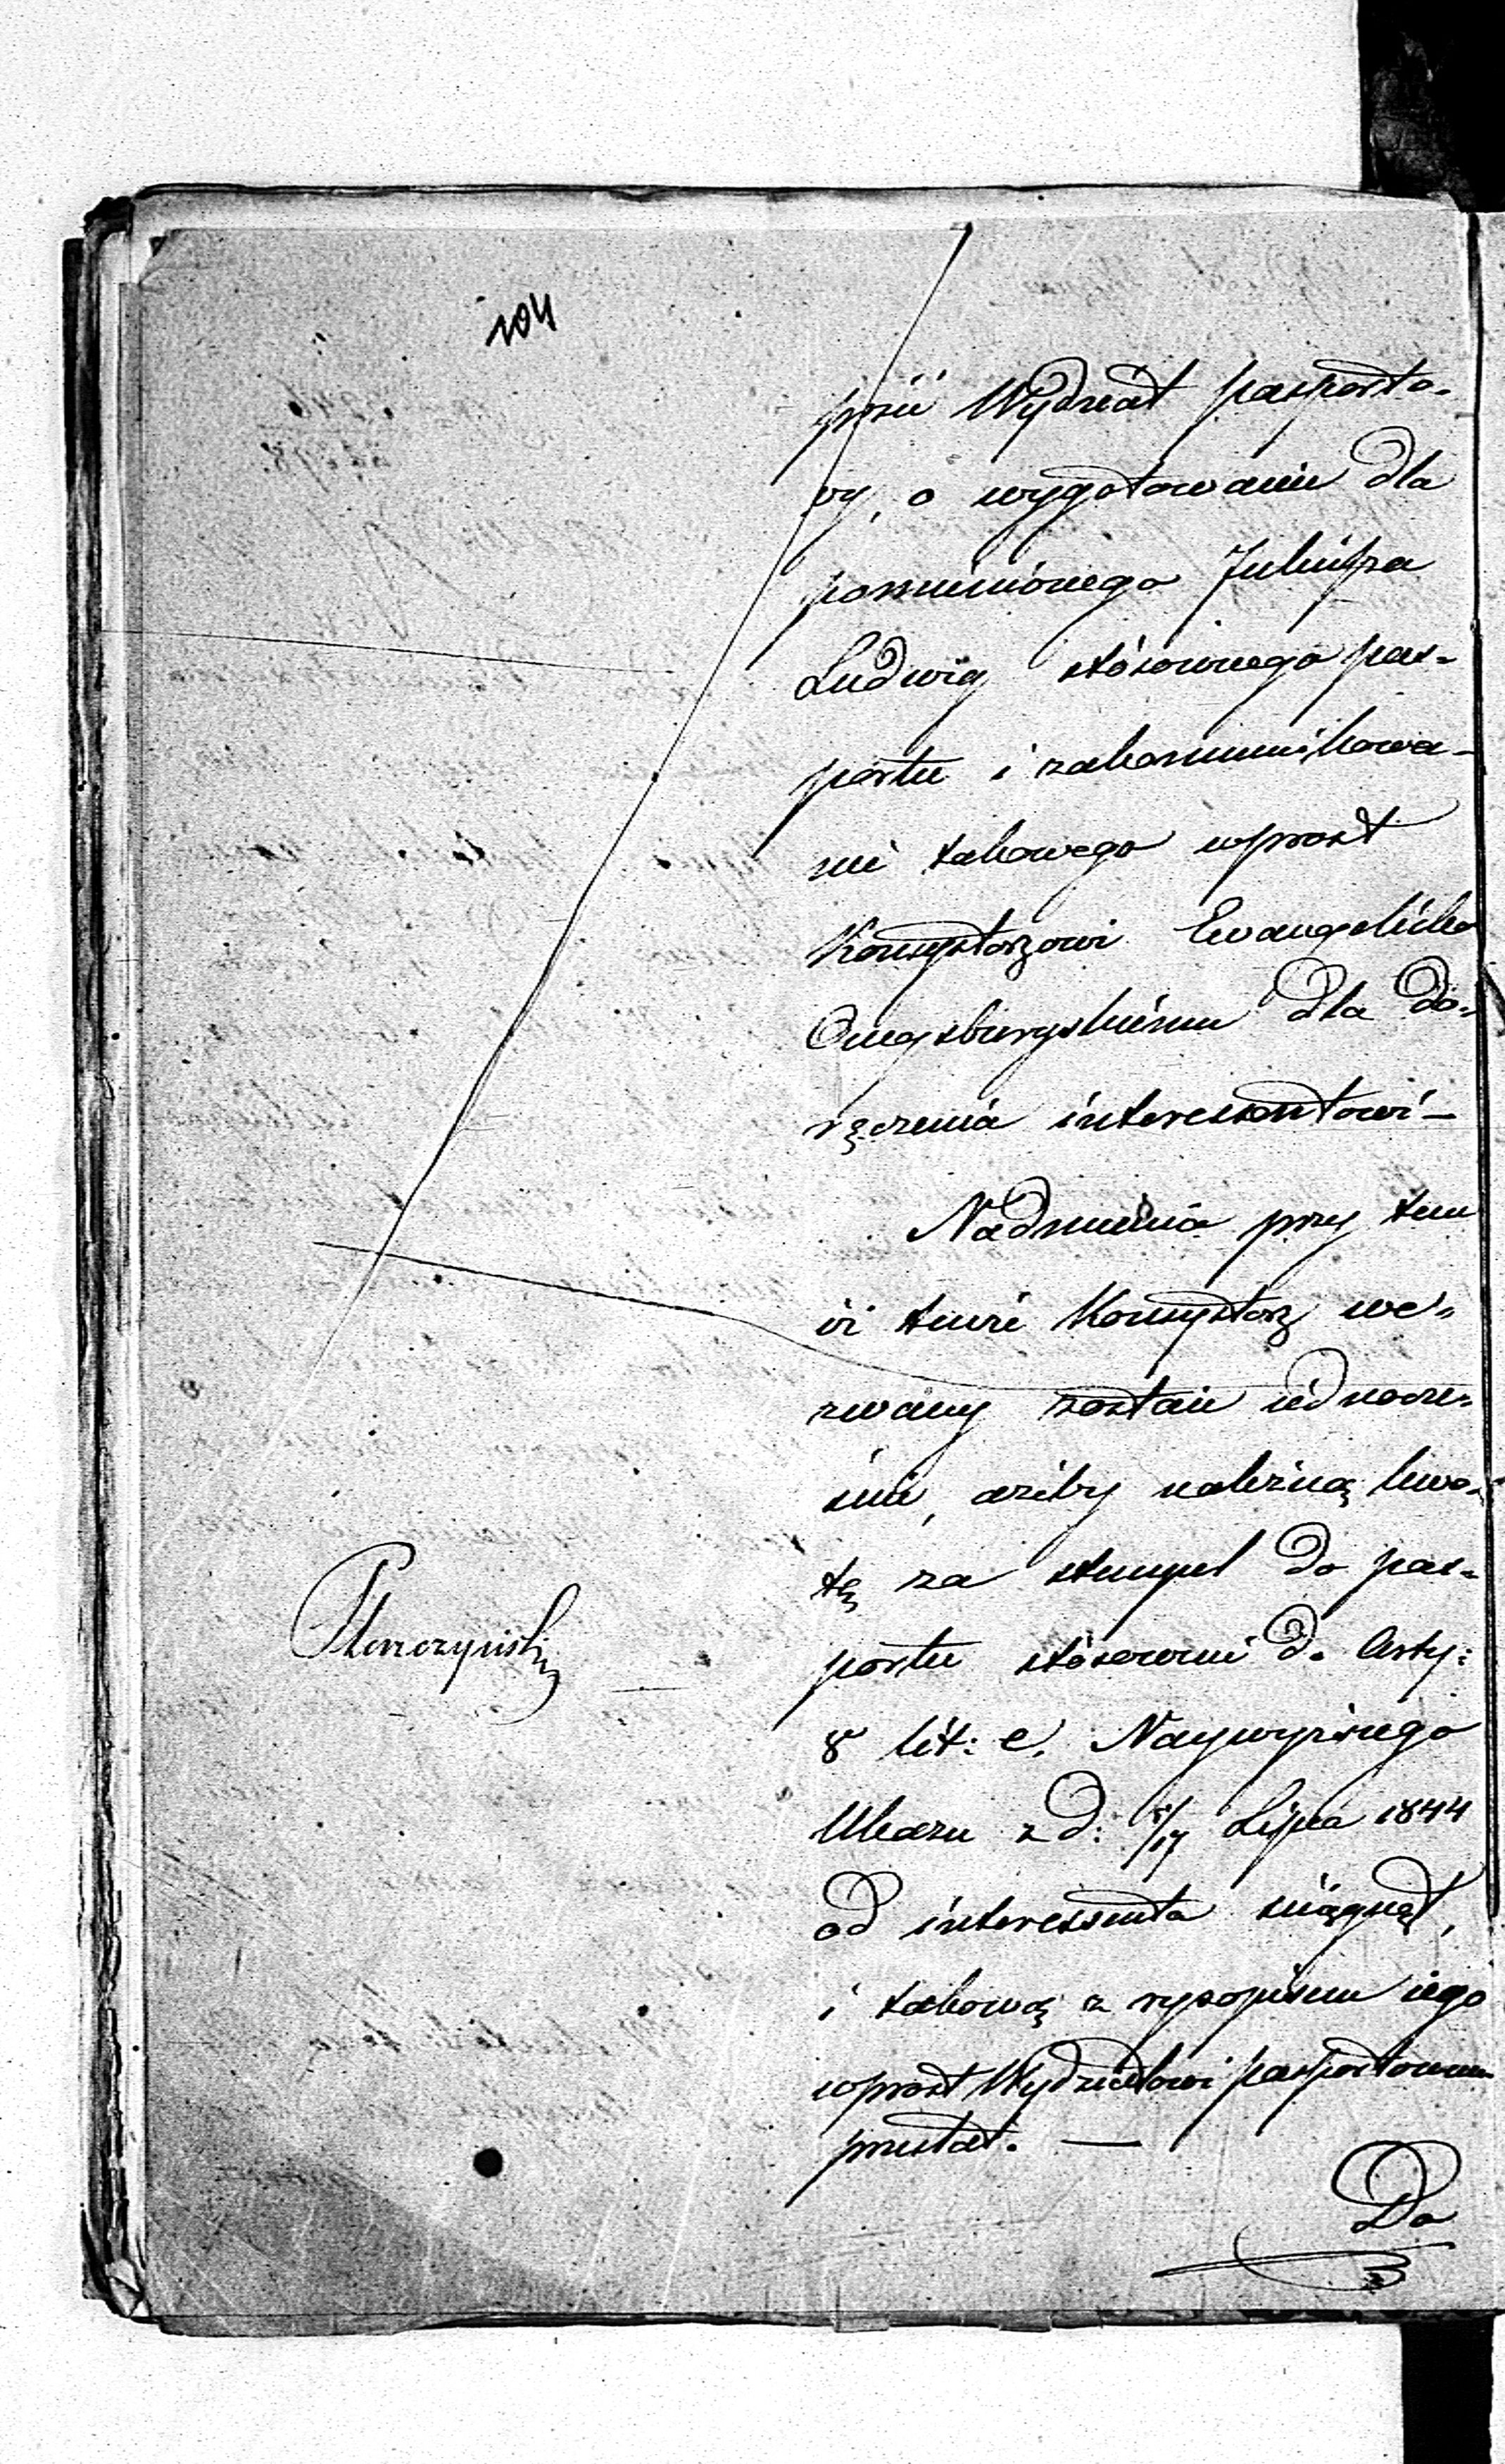 104
prosić Wydział pasporto-
wy, o wygotowanie dla
pomienionego Juliusza
Ludwig stósownego pas-
portu i zakommunikowa-
nie takowego wprost
Konsystorzowi Ewangelicko
Augsburgskiému dla do-
ręczenia interessentowi —
Nadmienia przy tem
iż tenże Konsystorz we-
zwany zostaie iednocze-
śnie, ażeby należną kwo-
tę za stempel do pas-
portu stósownie do Arty:
8 lit: e. Naywyższego
Ukazu z d: 5/17 Lipca 1844
od interessenta ściągnął,
i takową z rysopisem iego
wprost Wydziałowi pasportowemu
przesłał. —
Do